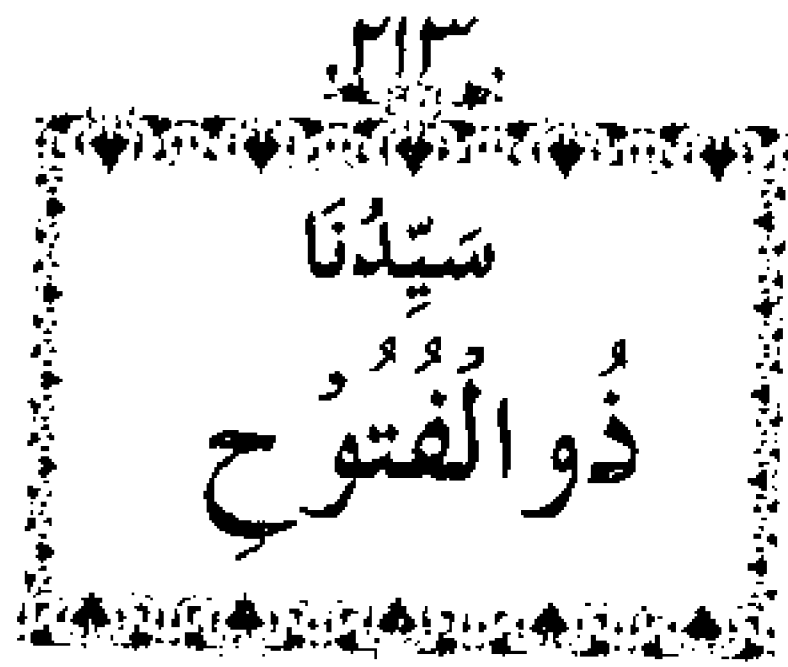 ٢١٣
سَيِّدُنَا
ذُوالْفُتُوْحِ